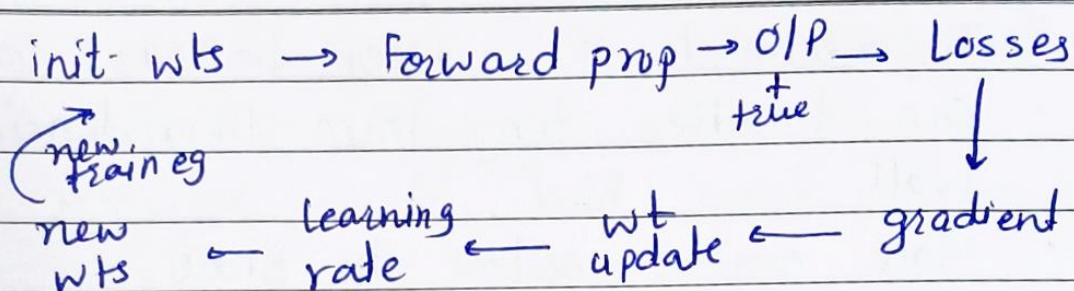 init. wts → Forward prop → O/P → Losses
+
true
↓
new train eg
new wts ← learning rate ← wt update ← gradient